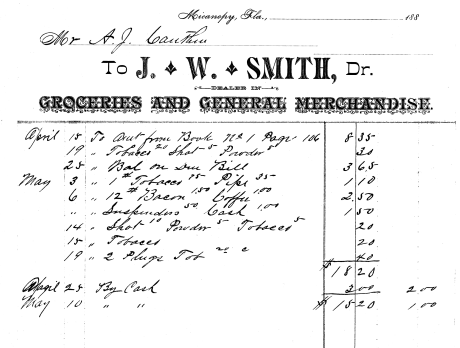 Micanopy, Fla., 188
Mr A. J.
To J. W. SMITH, Dr.
DEALER IN
GROCERIES AND GENERAL MERCHANDISE.
April 15 To Amt from Book No 1 Page 106 8 35
19 " Tobacco 20 Shot 5 Powder 5 30
25 " Bal on Due Bill 3 65
May 3 " 1 # Tobacco 75 Pipe 35 1 10
6 " 12 # Bacon 1.50 Coffee 1.00 2.50
" " Suspenders 50 Cash 1.00 1 50
14 " Shot 10 Powder 5 Tobacco 5 20
15 " Tobacco 20
19 " 2 Plugs Tob 20 c 40
$ 18 20
April 25 By Cash 2 00 2 00
May 10 " " $ 15 20 1 00